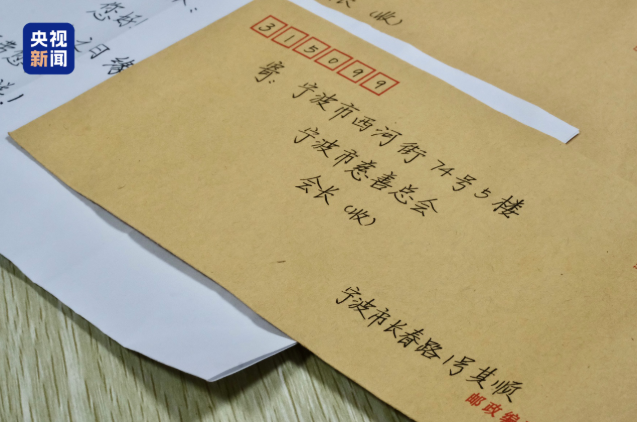 央视
新闻
长(收)
您好
315099
寄:宁波市西河街74号5楼
宁波市慈善总会
会长(收)
宁波市长春路1号其顺
邮政编